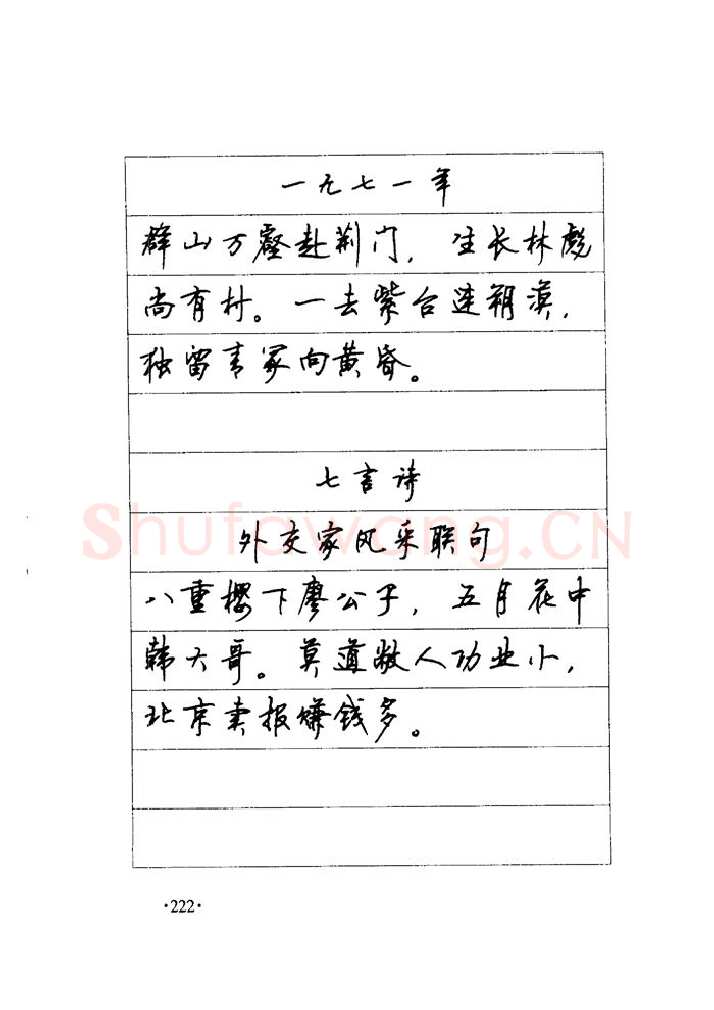 一九七一年
群山万壑赴荆门，生长林彪
尚有村。一去紫台连朔漠，
独留青冢向黄昏。
七言诗
Shufawang.CN
外交家风采联句
八重樱下廖公子，五月花中
韩大哥。莫道敝人功业小，
北京卖报赚钱多。
·222·